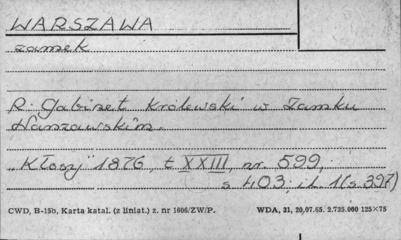 WARSZAWA
zamek
R. Gabinet Królewski w Zamku
Warszawskim.
"Kłosy" 1876, t XXIII, nr. 599,
s 403; il. 1 (s 397)
CWD, B-15b, Karta katal. (z liniat.) z. nr 1606/ZW/P. WDA, 31, 20.07.65. 2.725.000 125×75